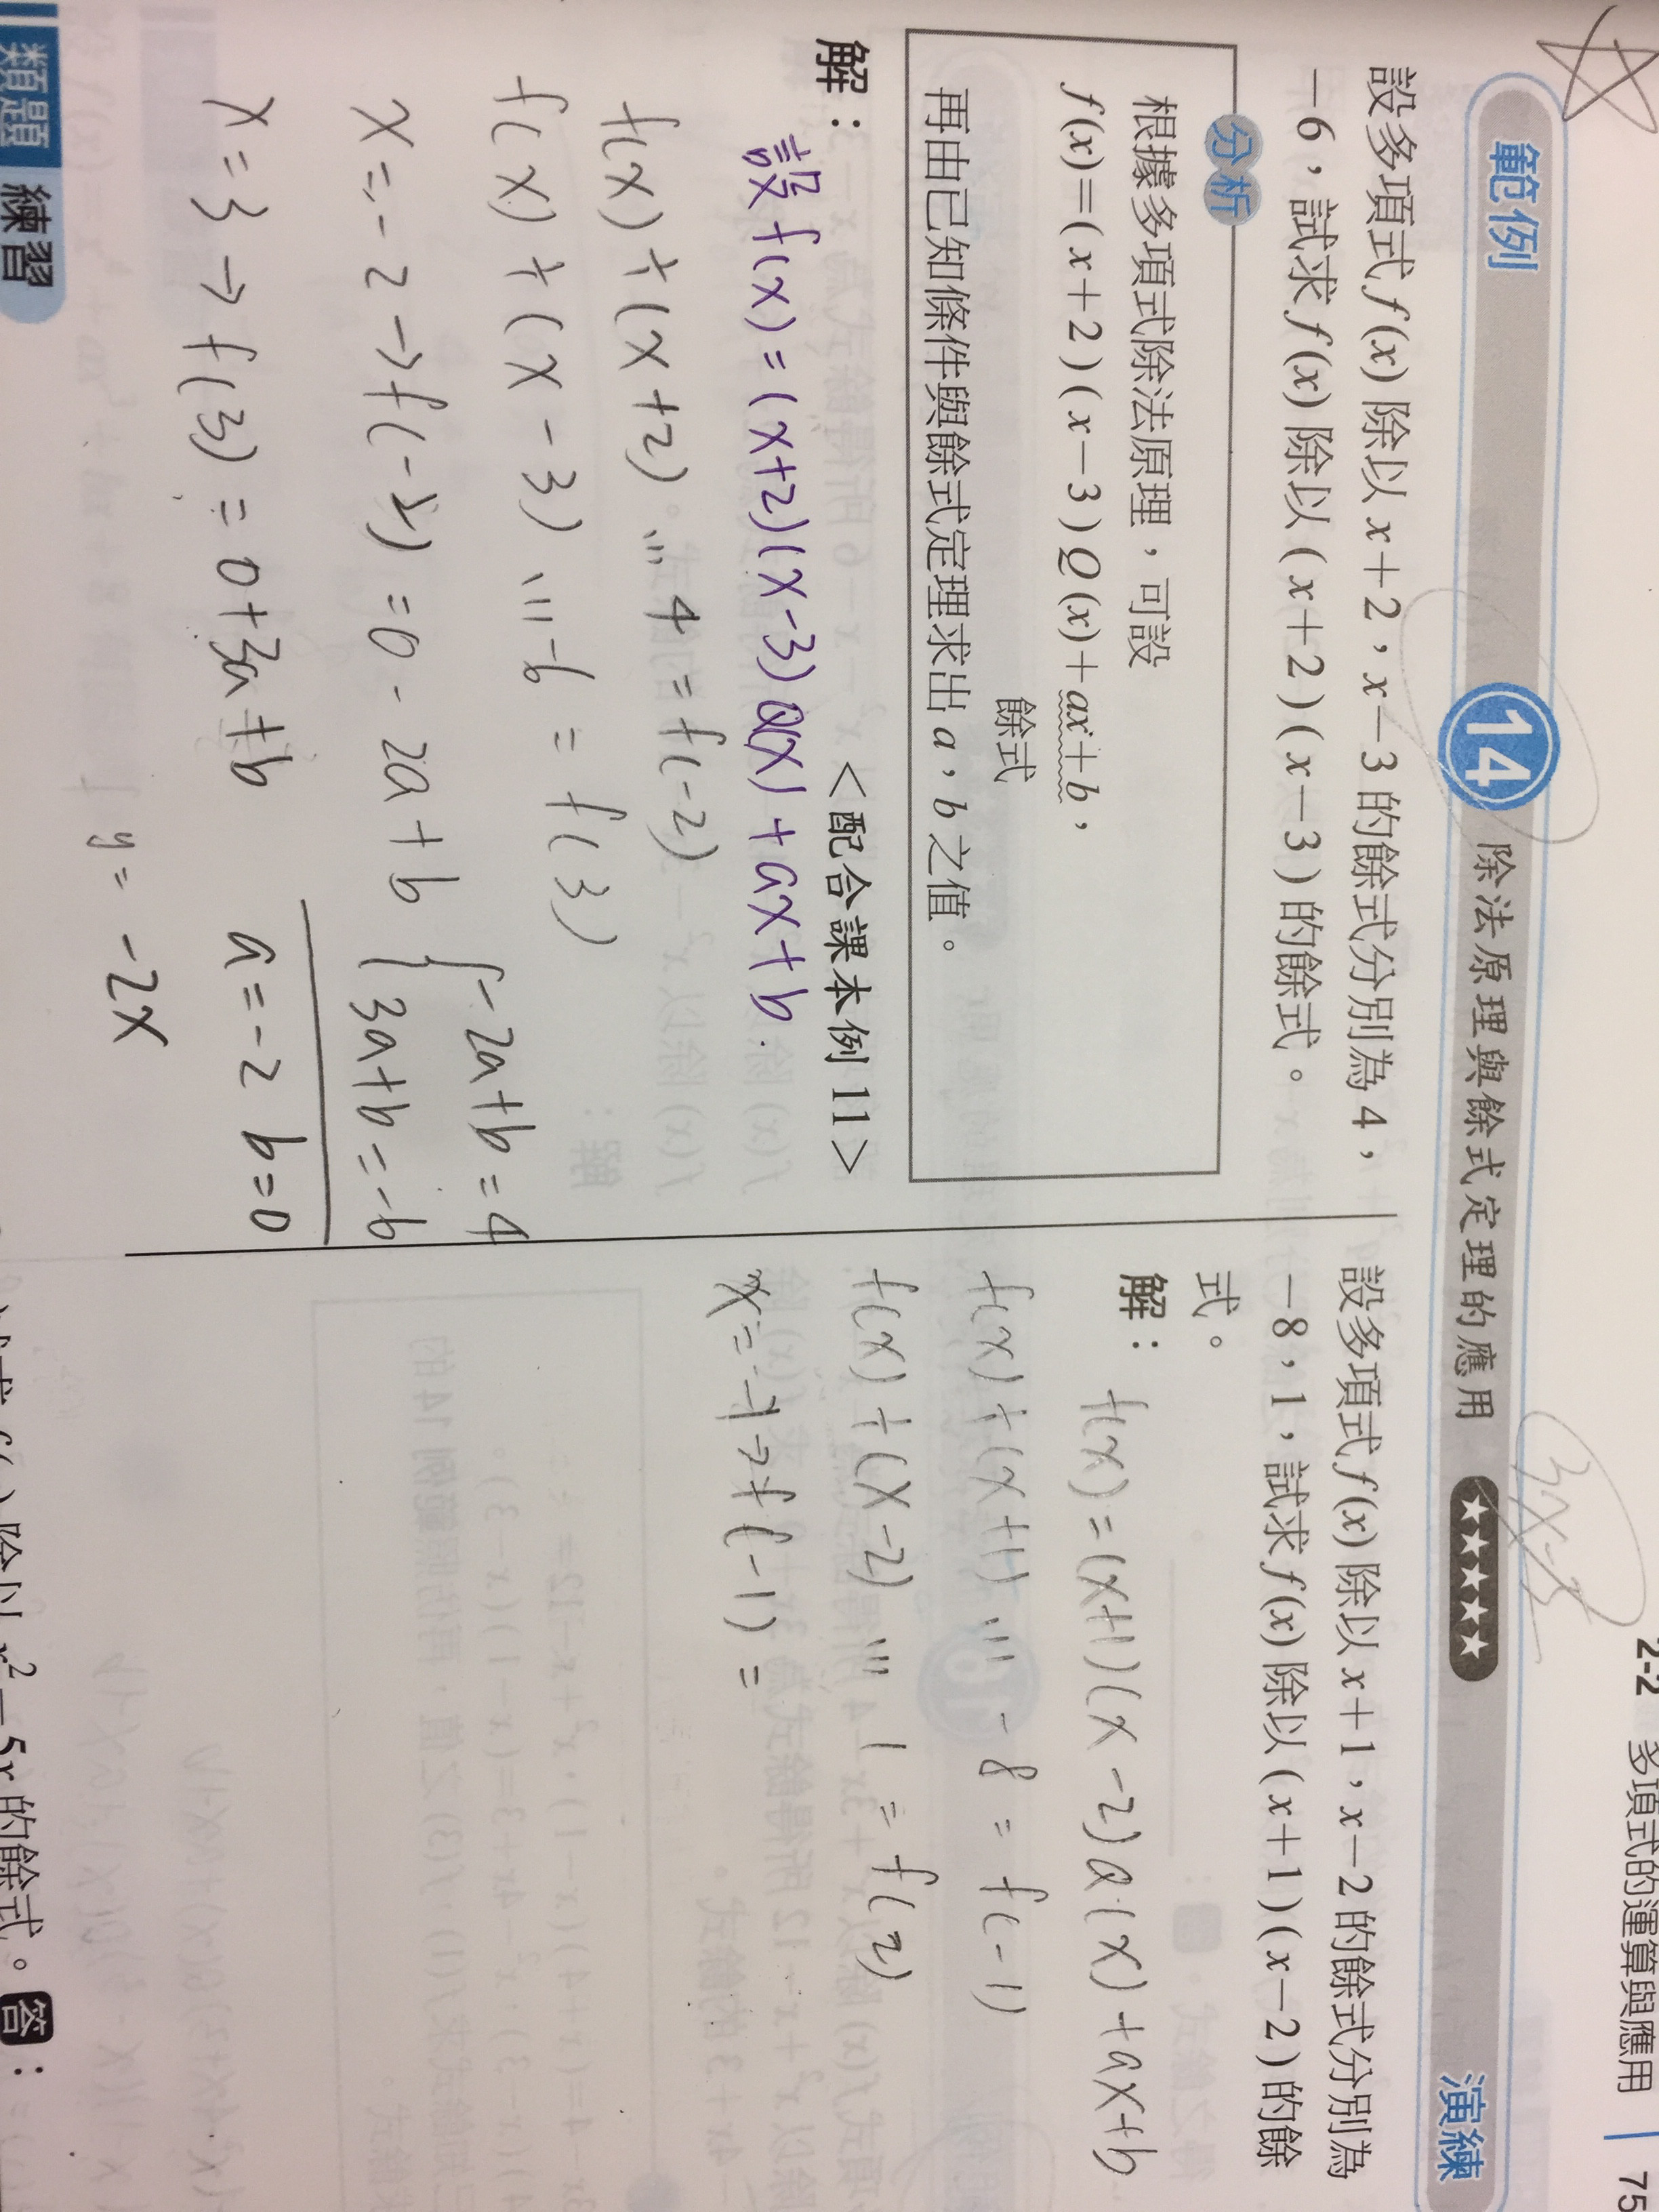 2-2 多項式的運算與應用 75
範例 14 除法原理與餘式定理的應用 ★★★★★ 演練
設多項式 f(x) 除以 x+2，x-3 的餘式分別為 4，
-6，試求 f(x) 除以 (x+2)(x-3) 的餘式。
分析
根據多項式除法原理，可設
f(x)=(x+2)(x-3)Q(x)+ax+b，
餘式
再由已知條件與餘式定理求出 a，b 之值。
<配合課本例 11>
解：
設 f(x) = (x+2)(x-3)Q(x)+ax+b.
f(x)÷(x+2) ... 4 = f(-2)
f(x)÷(x-3) ... -6 = f(3)
x=-2→f(-2) = 0-2a+b
x=3→f(3) = 0+3a+b
-2a+b=4
3a+b=-6
a=-2 b=0
y=-2x
設多項式 f(x) 除以 x+1，x-2 的餘式分別為
-8，1，試求 f(x) 除以 (x+1)(x-2) 的餘
式。
解：
f(x) = (x+1)(x-2)Q(x)+ax+b
f(x)÷(x+1) ... -8 = f(-1)
f(x)÷(x-2) ... 1 = f(2)
x=-1→f(-1) =
類題 練習
除以 x²-5x 的餘式。答：